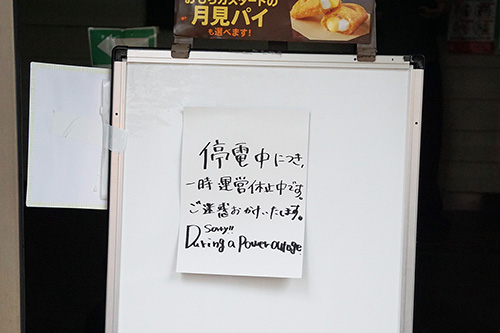 おもちカスタードの
月見パイ
も選べます!
停電中につき,
一時 運営休止中です。
ご迷惑おかけいたします。
Sorry!!
During a Power outage